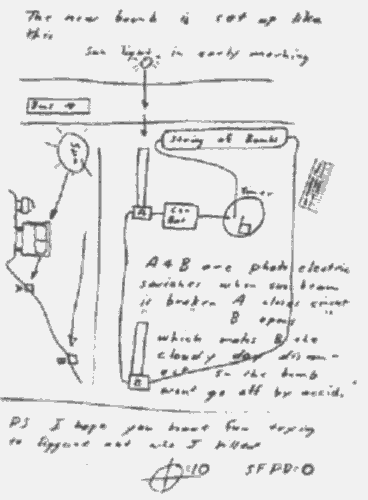 The new bomb is set up like
this
Sun light in early morning
Bus
Sun
String of Bombs
Timer
A
Car
Bat
A & B are photo electric
switches when sun beam
is broken A closes
B opens
which makes B the
cloudy day
so the bomb
wont go off by accid.
B
PS I hope you have fun trying
to figgure out who I killed
=10 SFPD=0